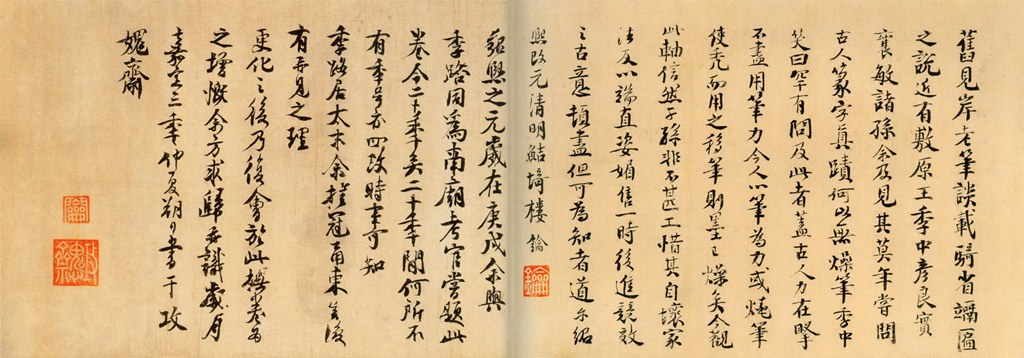 舊見岸老筆談載騎省竵匾
之說近有敷原王季中彥良實
襄敏諸孫余及見其莫年嘗問
古人篆字真蹟何以無燥筆季中
笑曰罕有問及此者蓋古人力在掔
不盡用筆力今人以筆為力或燒筆
使禿而用之移筆則墨已燥矣今觀
此軸信然子孫非不甚工惜其自壞家
法反以端直姿媚售一時後進競效
之古意頓盡但可為知者道尔紹
熙改元清明鮚埼樓鑰
紹熙之元歲在庚戌余與
季路同為南廟考官嘗題此
卷今二十年矣二十年間何所不
有年号亦四改時事可知
季路居太末余挂冠甬東豈復
有再見之理
更化之後乃復會於此攬卷為
之增慨余方求歸再識歲月
嘉定三年仲夏朔日書于攻
媿齋